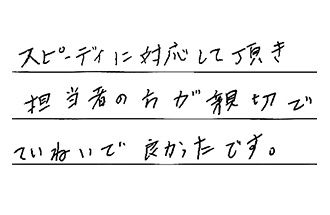 スピーディに対応して頂き
担当者の方が親切で
ていねいで良かったです。